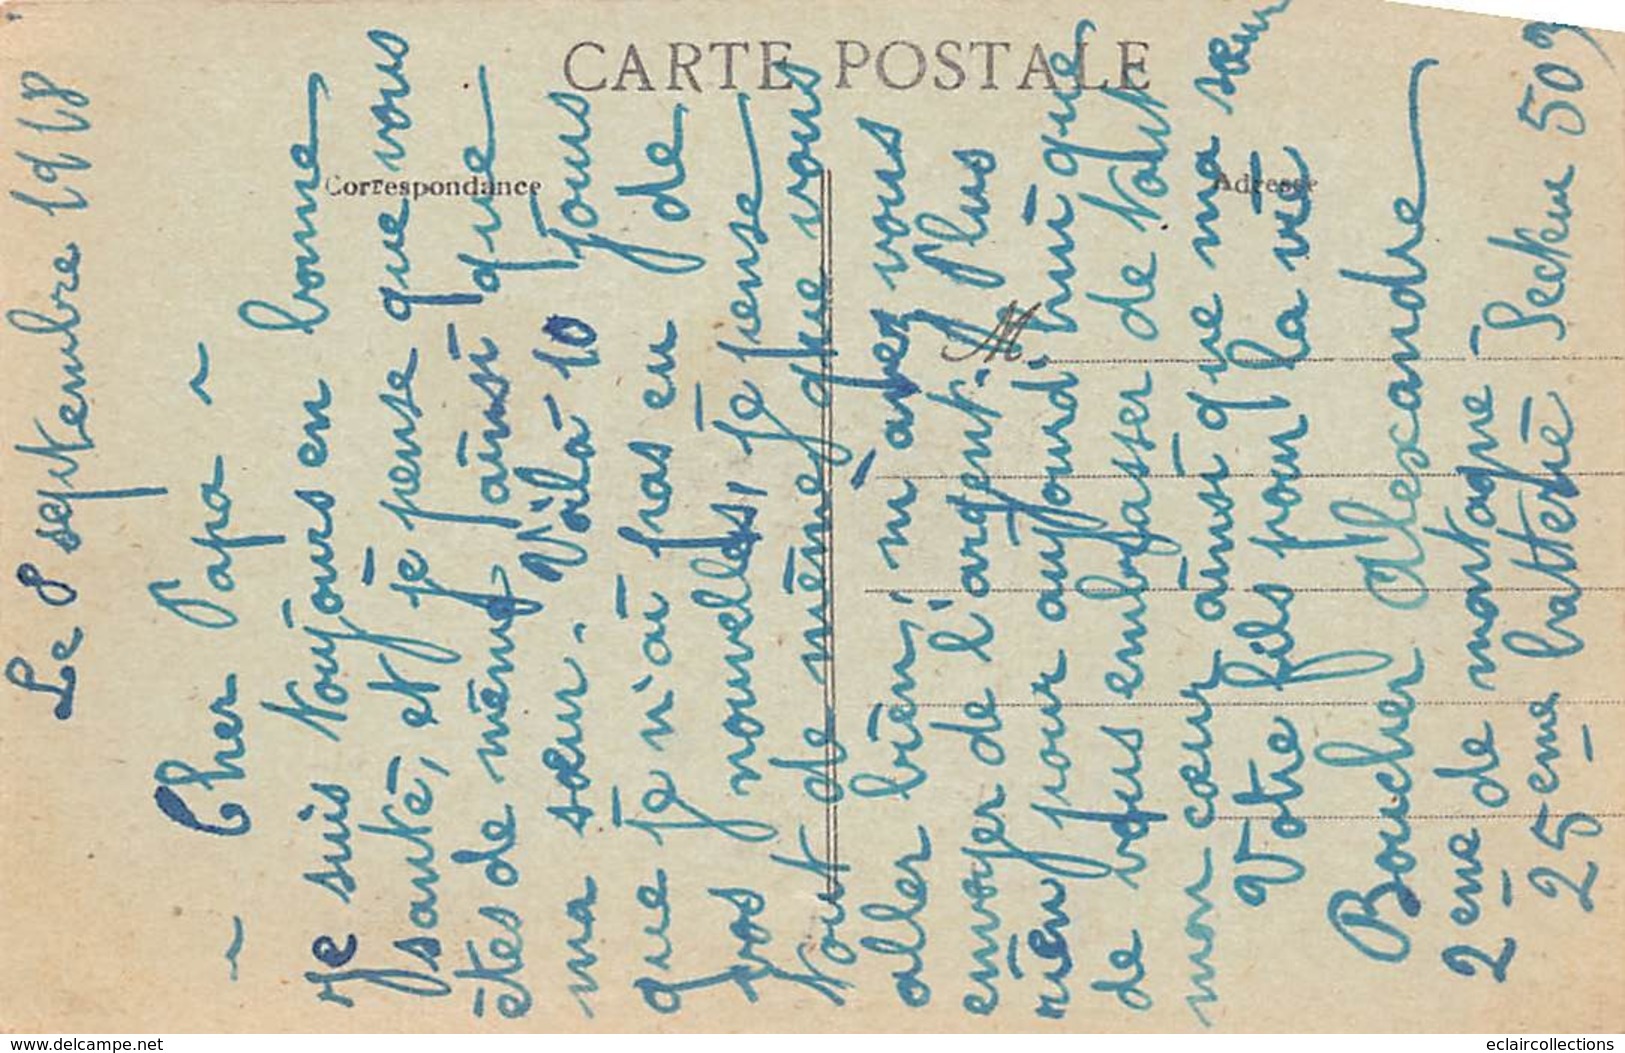 CARTE POSTALE
Correspondance
Adresse
M
Le 8 septembre 1918
Cher Papa
Je suis toujours en bonne
santé, et je pense que vous
êtes de même ainsi que
ma sœur. Voilà 10 jours
que je n'ai pas eu de
vos nouvelles, je pense
tout de même que vous
aller bien, m'avez vous
envoyer de l'argent. Plus
rien pour aujourd'hui que
de vous embrasser de tout
mon cœur ainsi que ma sœur
Votre fils pour la vie
Boucher Alexandre
2eme de montagne
25eme batterie Secteur 509
www.delcampe.net
eclaircollections